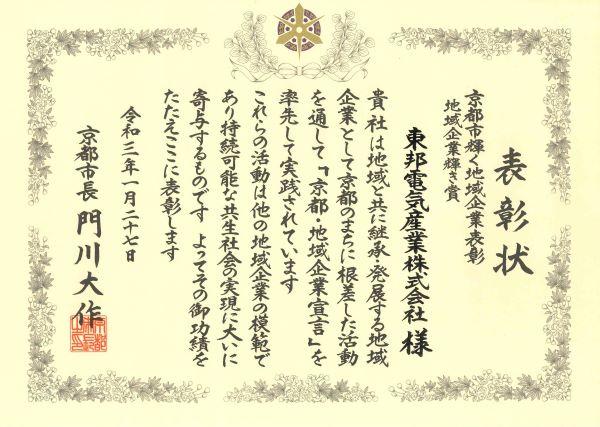 表彰状
京都市輝く地域企業表彰
地域企業輝き賞
東邦電気産業株式会社 様
貴社は地域と共に継承・発展する地域
企業として京都のまちに根差した活動
を通して、「京都・地域企業宣言」を
率先して実践されています
これらの活動は他の地域企業の模範で
あり持続可能な共生社会の実現に大いに
寄与するものです よってその御功績を
たたえここに表彰します
令和三年一月二十七日
京都市長 門川大作